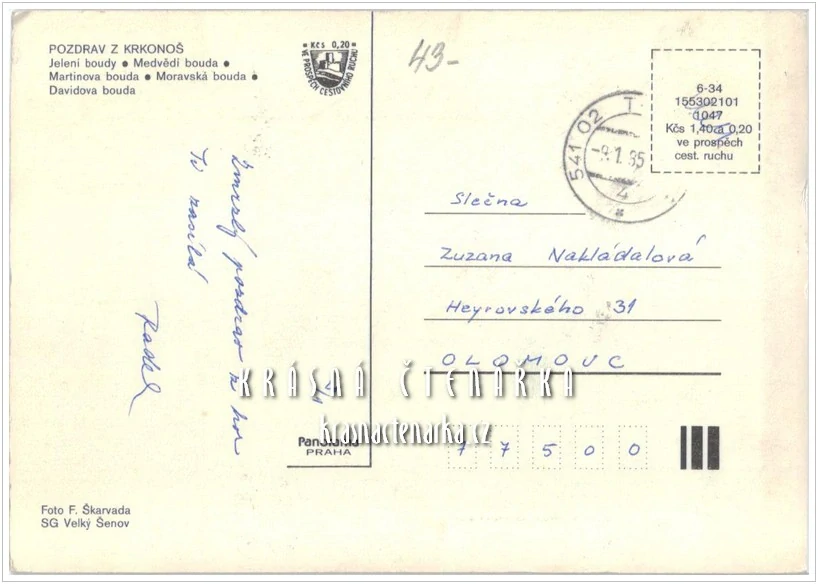 POZDRAV Z KRKONOŠ
Jelení boudy ● Medvědí bouda ●
Martinova bouda ● Moravská bouda ●
Davidova bouda
Kčs 0,20
VE PROSPĚCH CESTOVNÍHO RUCHU
43-
6-34
155302101
1047
Kčs 1,40 a 0,20
ve prospěch
cest. ruchu
541 02 T
-9.1.85
4
*
Zmrzlý pozdrav z hor
Ti zasílá
Radek
Slečna
Zuzana Nakládalová
Heyrovského 31
OLOMOUC
77500
KRÁSNÁ ČTENÁŘKA
krasnactenarka.cz
Panorama
PRAHA
Foto F. Škarvada
SG Velký Šenov